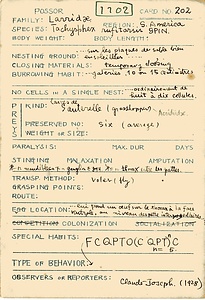 POSSOR 1702 CARD NO. 202
FAMILY: Larridae REGION: S. America
SPECIES: Tachysphex ruficaudis SPIN.
BODY WEIGHT: BODY LENGTH:
sur les plaques de sable bien
NESTING GROUND:
CLOSING MATERIALS: temporary closing
BURROWING HABIT: galeries 10 à 15 centimètres
NO. CELLS IN A SINGLE NEST: ordinairement de huit à dix cellules.
PREY
KIND: Larves de Sauterelle (grasshopper) Acrididae.
PRESERVED NO: Six (average)
WEIGHT OR SIZE:
PARALYSIS: MAX. DUR. DAYS
STINGING MALAXATION AMPUTATION
TRANSP. METHOD: Voler (fly)
GRASPING POINTS:
ROUTE:
EGG LOCATION:
COMPETITION COLONIZATION SOCIALIZATION
SPECIAL HABITS:
TYPE OF BEHAVIOR:
OBSERVERS OR REPORTERS:
Claude-Joseph. (1928)